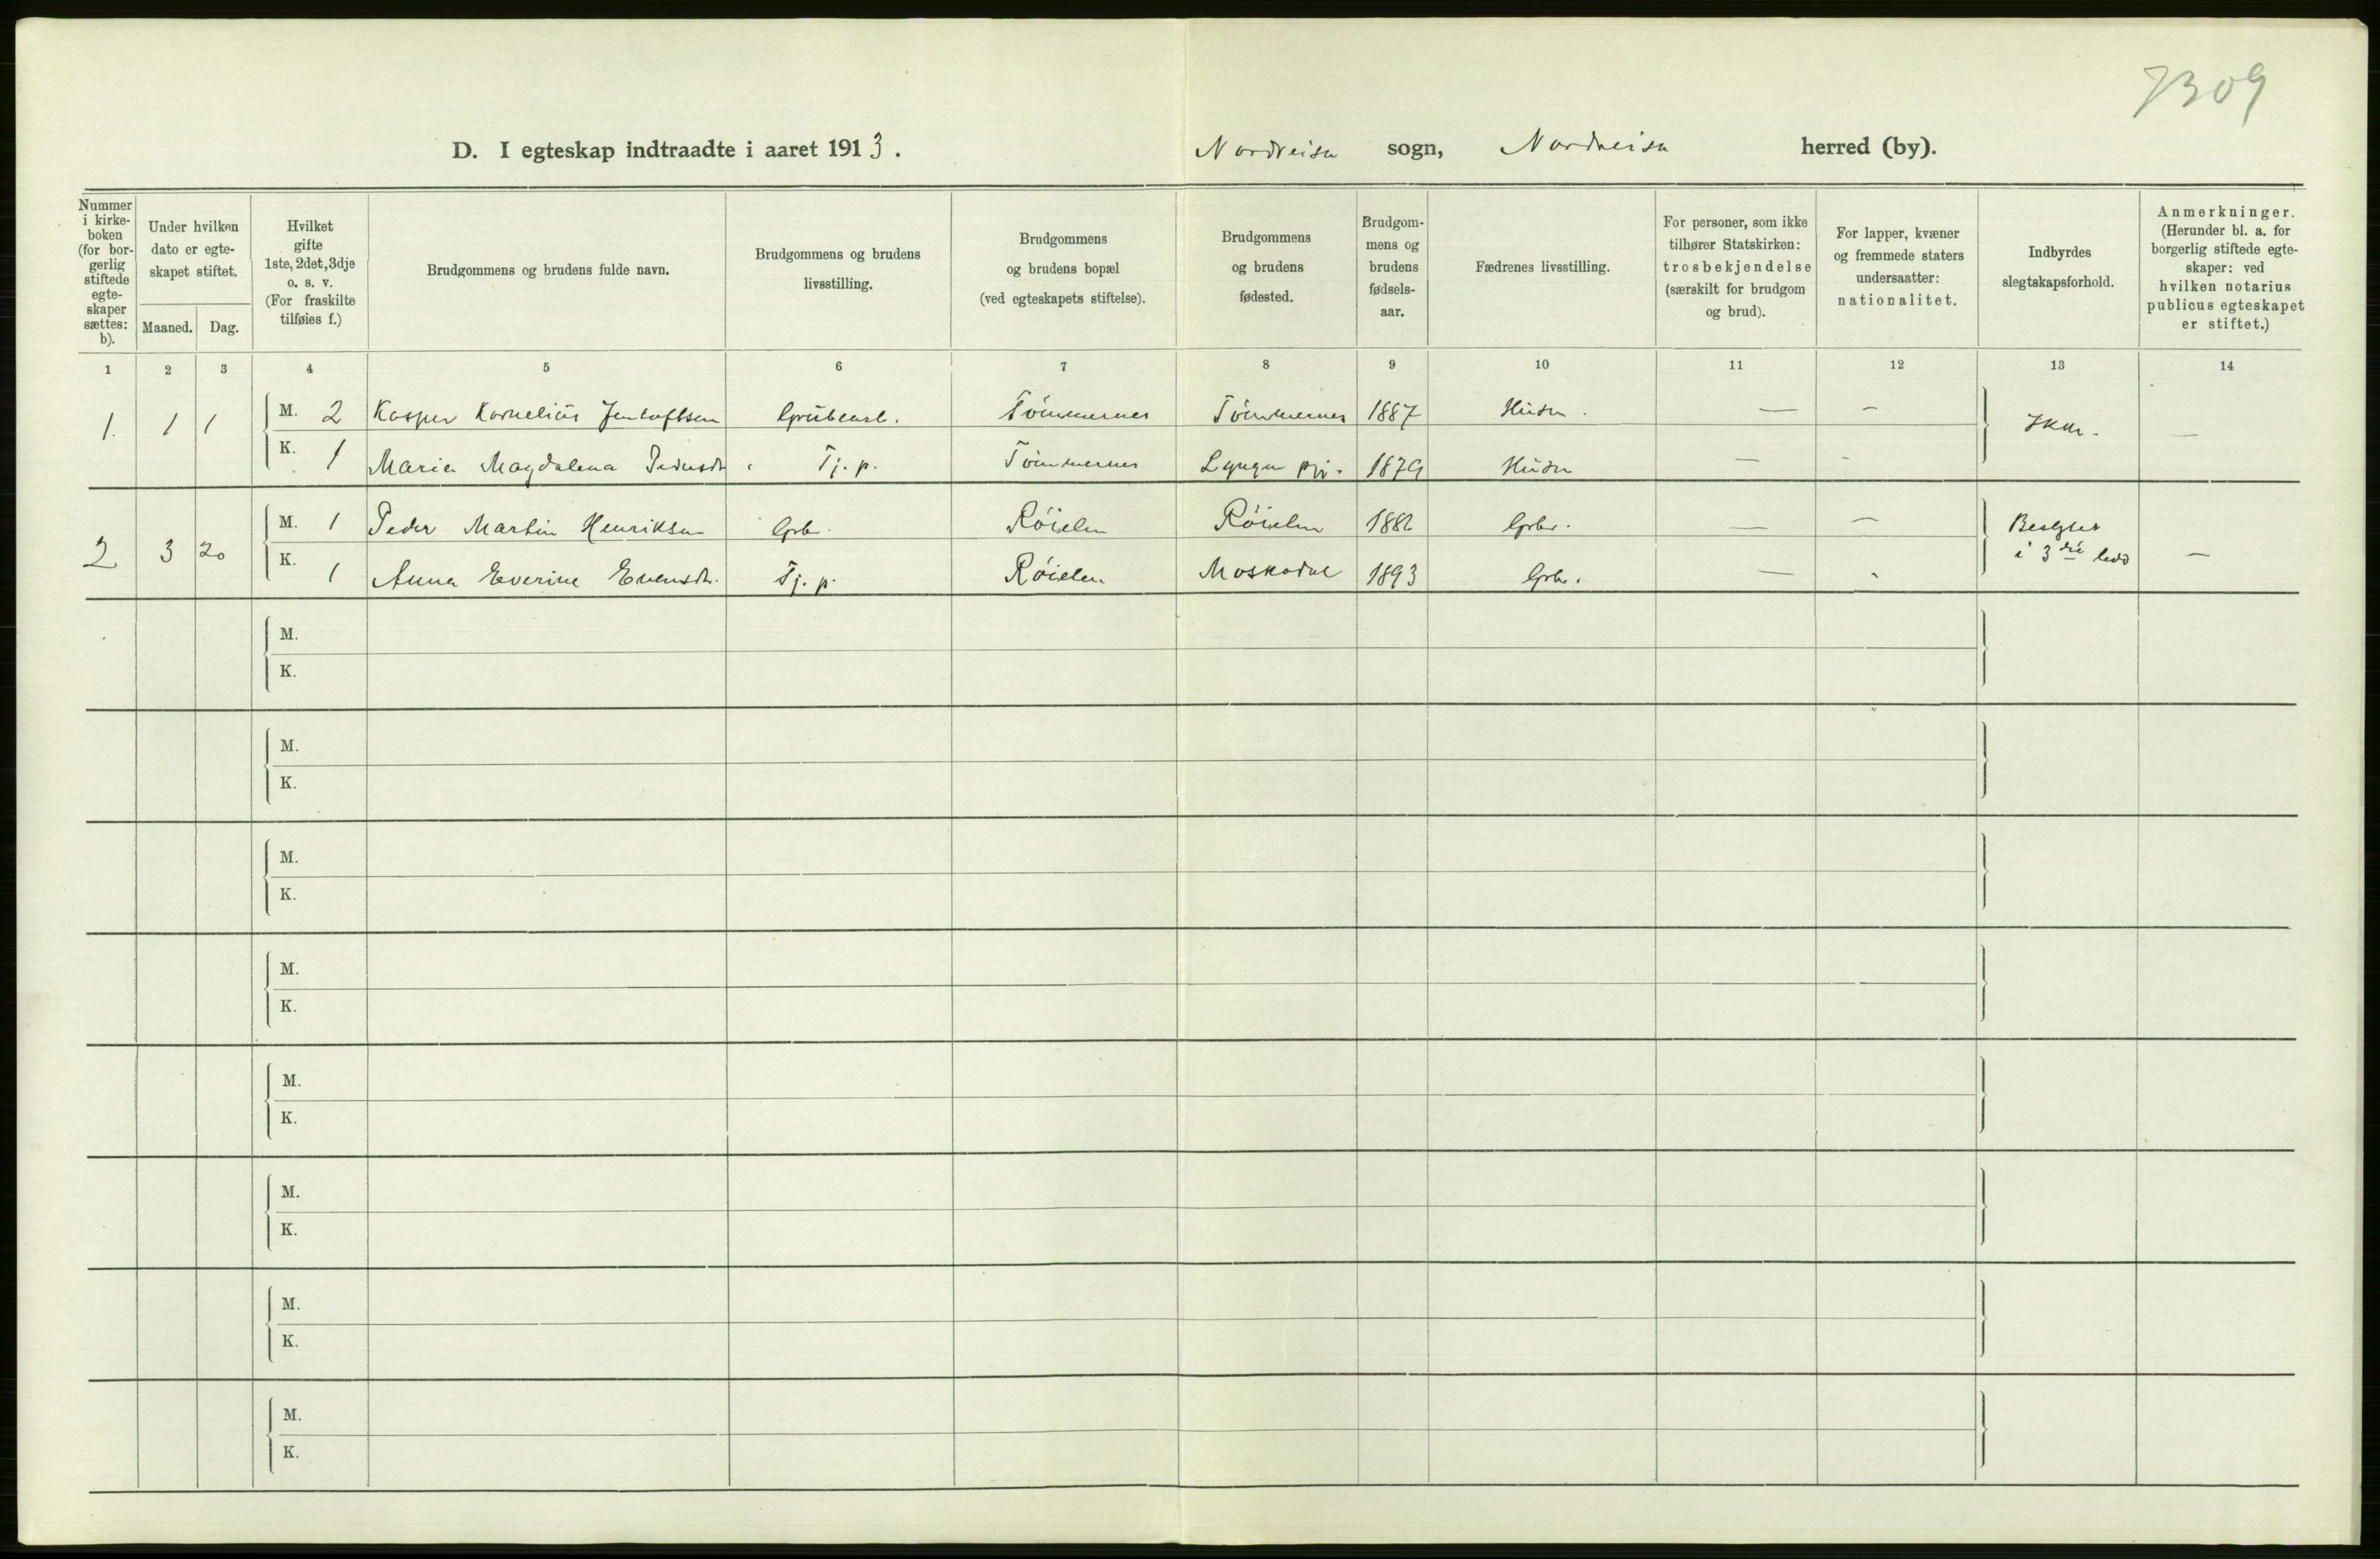 7309
D. I egteskap indtraadte i aaret 1913. Nordreisa sogn, Nordreisa herred (by).
Nummer i kirke-boken (for bor-gerlig stiftede egte-skaper sættes: b).
Under hvilken dato er egte-skapet stiftet.
Maaned. Dag.
Hvilket gifte 1ste, 2det, 3dje o. s. v. (For fraskilte tilføies f.)
Brudgommens og brudens fulde navn.
Brudgommens og brudens livsstilling.
Brudgommens og brudens bopæl (ved egteskapets stiftelse).
Brudgommens og brudens fødested.
Brudgom-mens og brudens fødsels-aar.
Fædrenes livsstilling.
For personer, som ikke tilhører Statskirken: trosbekjendelse (særskilt for brudgom og brud).
For lapper, kvæner og fremmede staters undersaatter: nationalitet.
Indbyrdes slegtskapsforhold.
Anmerkninger. (Herunder bl. a. for borgerlig stiftede egte-skaper: ved hvilken notarius publicus egteskapet er stiftet.)
1 2 3 4 5 6 7 8 9 10 11 12 13 14
1. 1 1 M. 2 Kasper Kornelius Jentoftsen Grubearb. Tömmernes Tömmernes 1887 — — —
K. 1 Maria Magdalena Pedersdtr. Tj. p. Tömmernes Lyngen 1879 — -
2 3 20 M. 1 Peder Martin Henriksen Grb. Röielen Röielen 1882 Grbr. — — Beslgtet i 3die ledd —
K. 1 Anna Everine Evensdtr. Tj. p. Röielen Moskodal 1893 Grbr. — -
M.
K.
M.
K.
M.
K.
M.
K.
M.
K.
M.
K.
M.
K.
M.
K.